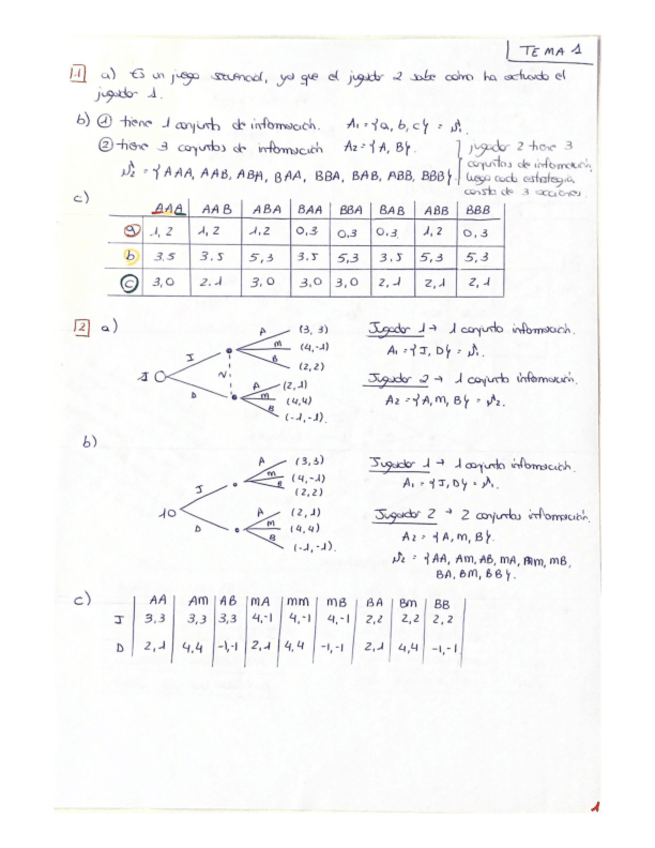 TEMA 1
1.1 a) Es un juego secuencial, ya que el jugador 2 sabe cómo ha actuado el
jugador 1.
b) ① tiene 1 conjunto de información. A₁ = {a, b, c} = S₁.
② tiene 3 conjuntos de información A₂ = {A, B}.
S₂ = {AAA, AAB, ABA, BAA, BBA, BAB, ABB, BBB}.
jugador 2 tiene 3
conjuntos de información,
luego cada estrategia
consta de 3 acciones.
c)
AAA AAB ABA BAA BBA BAB ABB BBB
a 1,2 1,2 1,2 0,3 0,3 0,3 1,2 0,3
b 3,5 3,5 5,3 3,5 5,3 3,5 5,3 5,3
c 3,0 2,1 3,0 3,0 3,0 2,1 2,1 2,1
1.2 a)
1 J D
A (3, 3)
M (4, -1)
B (2, 2)
A (2, 1)
M (4, 4)
B (-1, -1).
Jugador 1 → 1 conjunto información.
A₁ = {J, D} = S₁.
Jugador 2 → 1 conjunto información.
A₂ = {A, M, B} = S₂.
b)
1 J D
A (3, 3)
M (4, -1)
B (2, 2)
A (2, 1)
M (4, 4)
B (-1, -1).
Jugador 1 → 1 conjunto información.
A₁ = {J, D} = S₁.
Jugador 2 → 2 conjuntos información.
A₂ = {A, M, B}.
S₂ = {AA, AM, AB, MA, MM, MB,
BA, BM, BB}.
c)
AA AM AB MA MM MB BA BM BB
J 3,3 3,3 3,3 4,-1 4,-1 4,-1 2,2 2,2 2,2
D 2,1 4,4 -1,-1 2,1 4,4 -1,-1 2,1 4,4 -1,-1
1